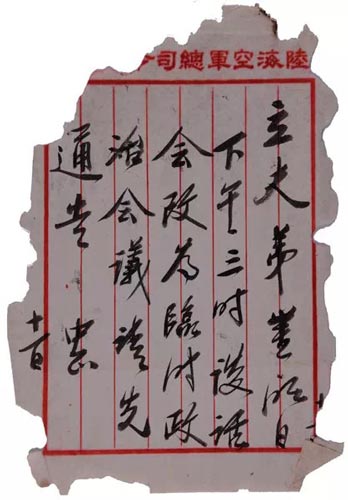 陸海空軍總司
立夫弟鑒明日
下午三时談話
会改為臨时政
治会議請先
通告